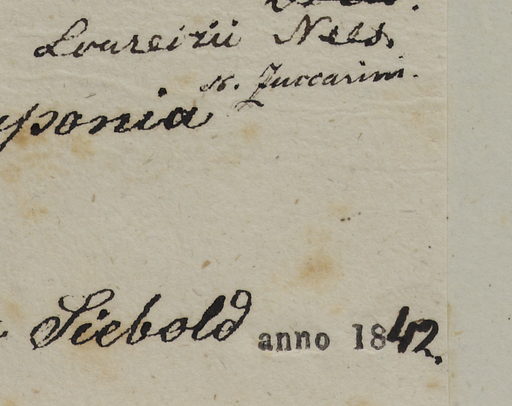 Loureirii Nees.
K. Zuccarini.
yponia
Siebold anno 1842.